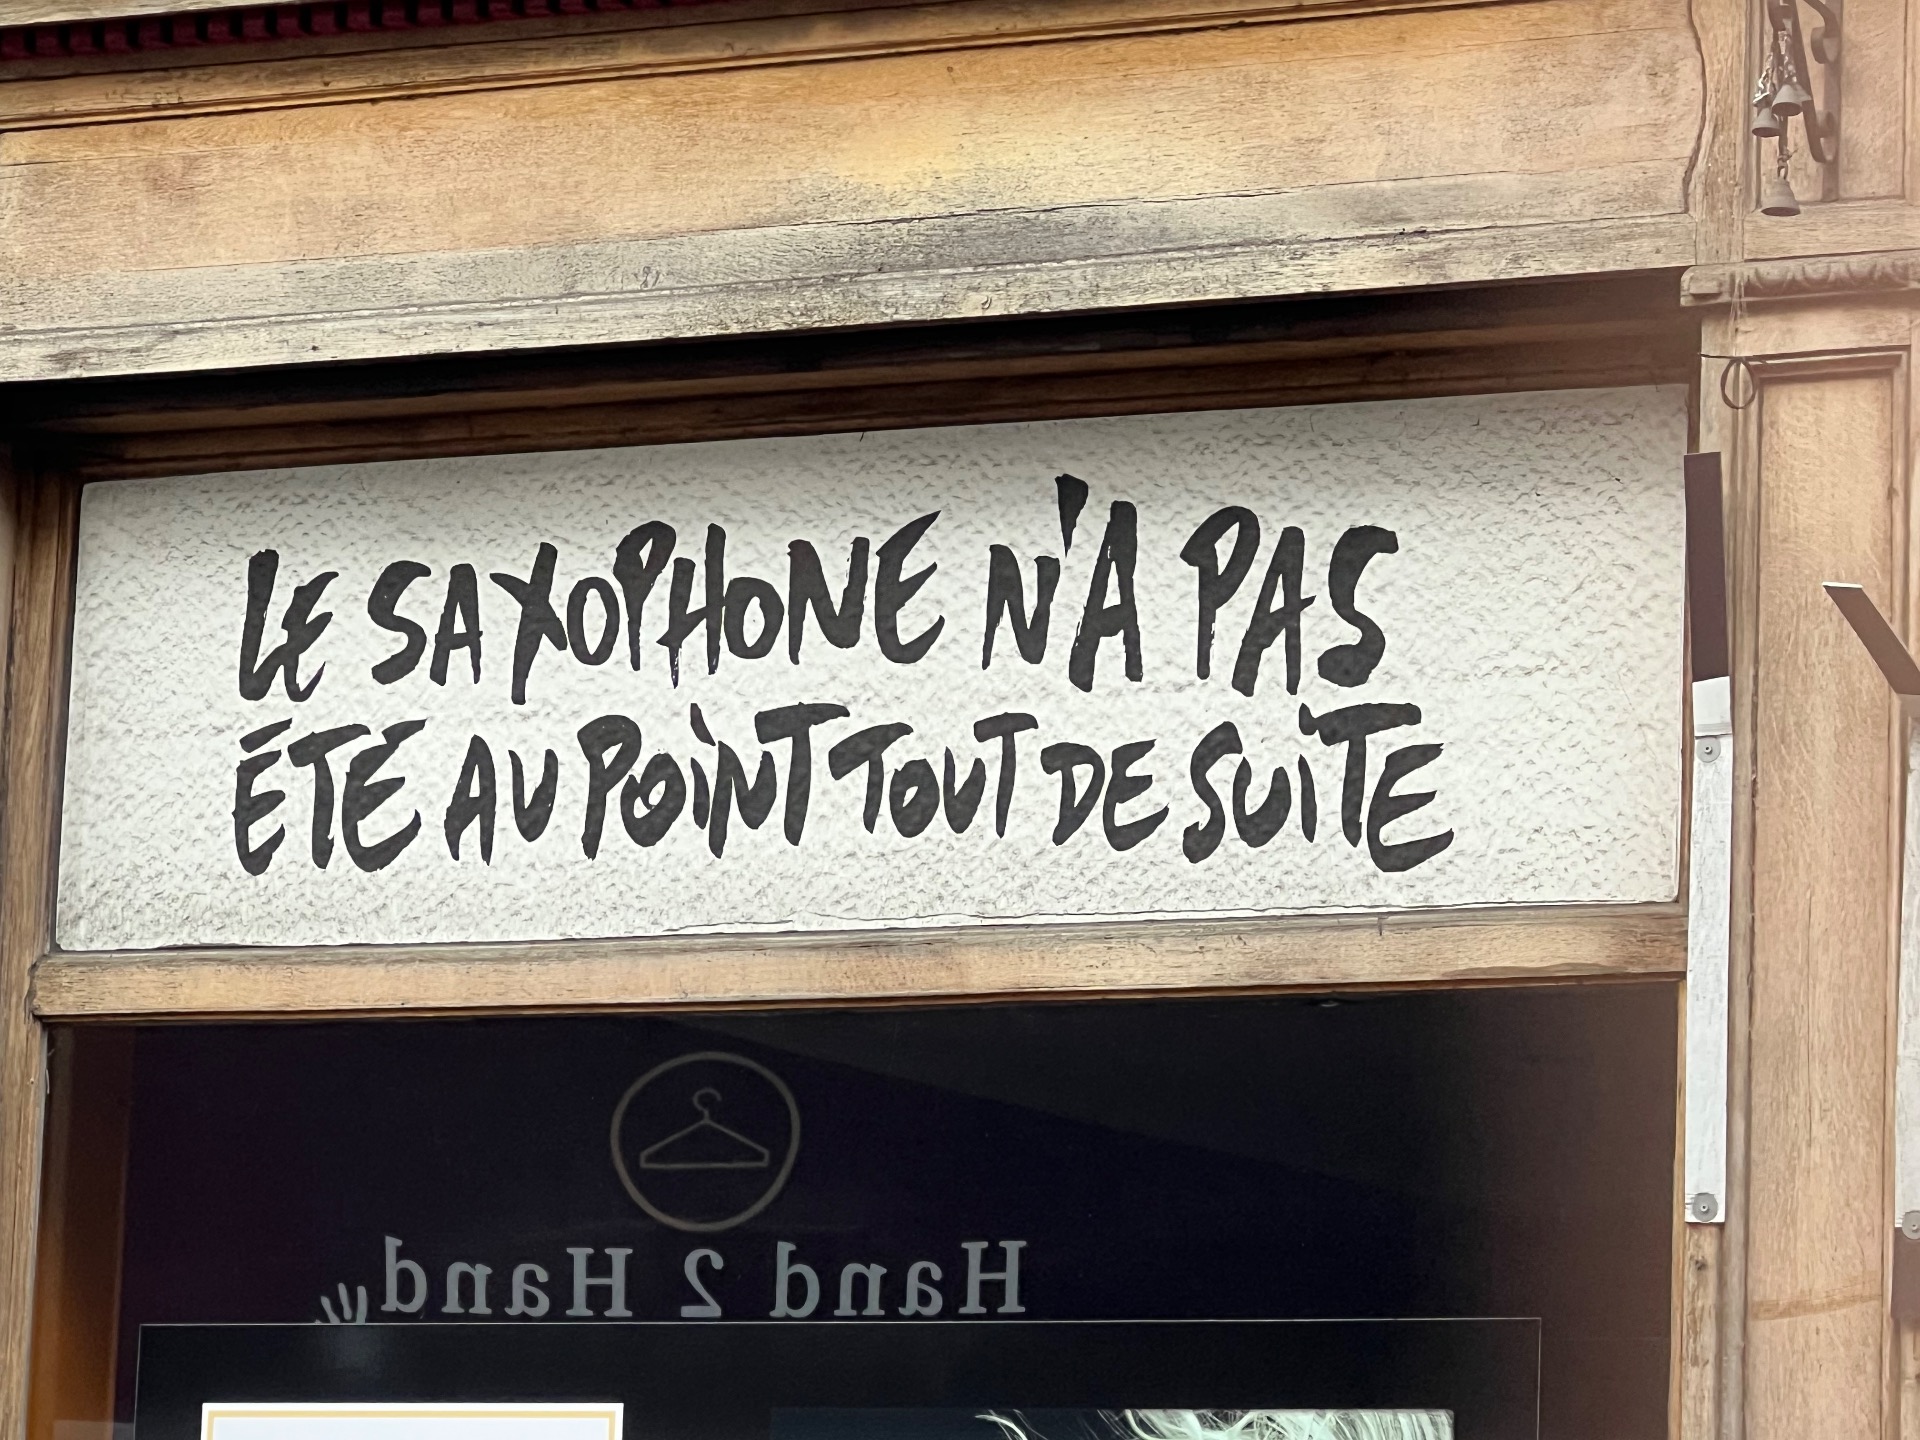 LE SAXOPHONE N'A PAS
ÉTÉ AU POINT TOUT DE SUITE
Hand 2 Hand